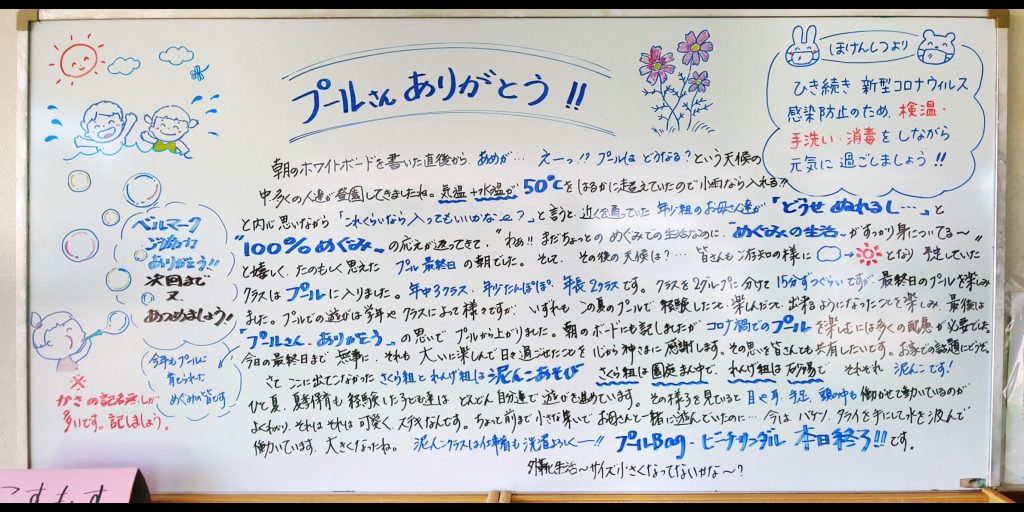 プールさん ありがとう!!
ほけんしつより
ひき続き 新型コロナウィルス
感染防止のため、検温・
手洗い・消毒をしながら
元気に過ごしましょう!!
朝のホワイトボードを書いた直後から、あめが… えーっ!? プールは どうなる? という天候の
中、多くの人達が登園してきましたね。気温+水温が 50℃をはるかに超えていたので 小雨なら入れる?
と内心思いながら「これくらいなら入ってもいいかな~?」と言うと、近くを通っていた 年少組のお母さん達が「どうせ ぬれるし…」と
"100%めぐみ〜"の応えが返ってきて、"わぁ!! まだちょっとの めぐみでの生活なのに、"めぐみの生活"がすっかり身についてる~
と嬉しく、たのもしく思えた プール最終日の朝でした。そして、その後の天候は?… 皆さんもご存知の様に → となり 予定していた
クラスは プールに入りました。年中3クラス・年少たんぽぽ・年長2クラスです。クラスを2グループに分けて 15分ずつぐらいですが、最終日のプールを楽しみ
ました。プールでの遊びは学年や クラスによって様々ですが、いずれも この夏のプールで 経験したこと、楽しんだこと、出来るようになったことを楽しみ、最後は
「プールさん、ありがとう」の思いで プールから上がりました。朝のボードにも記しましたが コロナ禍でのプールを楽しむには多くの配慮が必要でした。
今日の最終日まで 無事に、それも 大いに楽しんで日々過ごせたことを 心から神さまに感謝します。その思いを皆さんとも共有したいです。お家での話題にどうぞ。
さて ここに出てこなかった さくら組とれんげ組は泥んこあそび さくら組は園庭まん中で、れんげ組は砂場で それぞれ 泥んこです!
ひと夏、夏季保育も 経験した子ども達は どんどん 自分達で 遊びを進めています。その様子を見ていると 目や耳、手足、頭の中も 働かせて動いているのが
よくわかり、それは それは 可愛く、ステキなんです。ちょっと前まで 小さな靴で お母さんと一緒に遊んでいたのに… 今は バケツ、タライを手にして水を汲んで
働いています。大きくなったね。泥んこクラスは仕事着も 洗濯よろしく〜!! プールBag・ビーチサンダル 本日終了!!です。
サイズ小さくなってないかな〜?
ベルマーク
ご協力
ありがとう!!
次回まで
又、
あつめましょう!
今年もプールに
育てられた
めぐみの皆です
※
かさの記名無しが
多いです。記しましょう。
こすもす